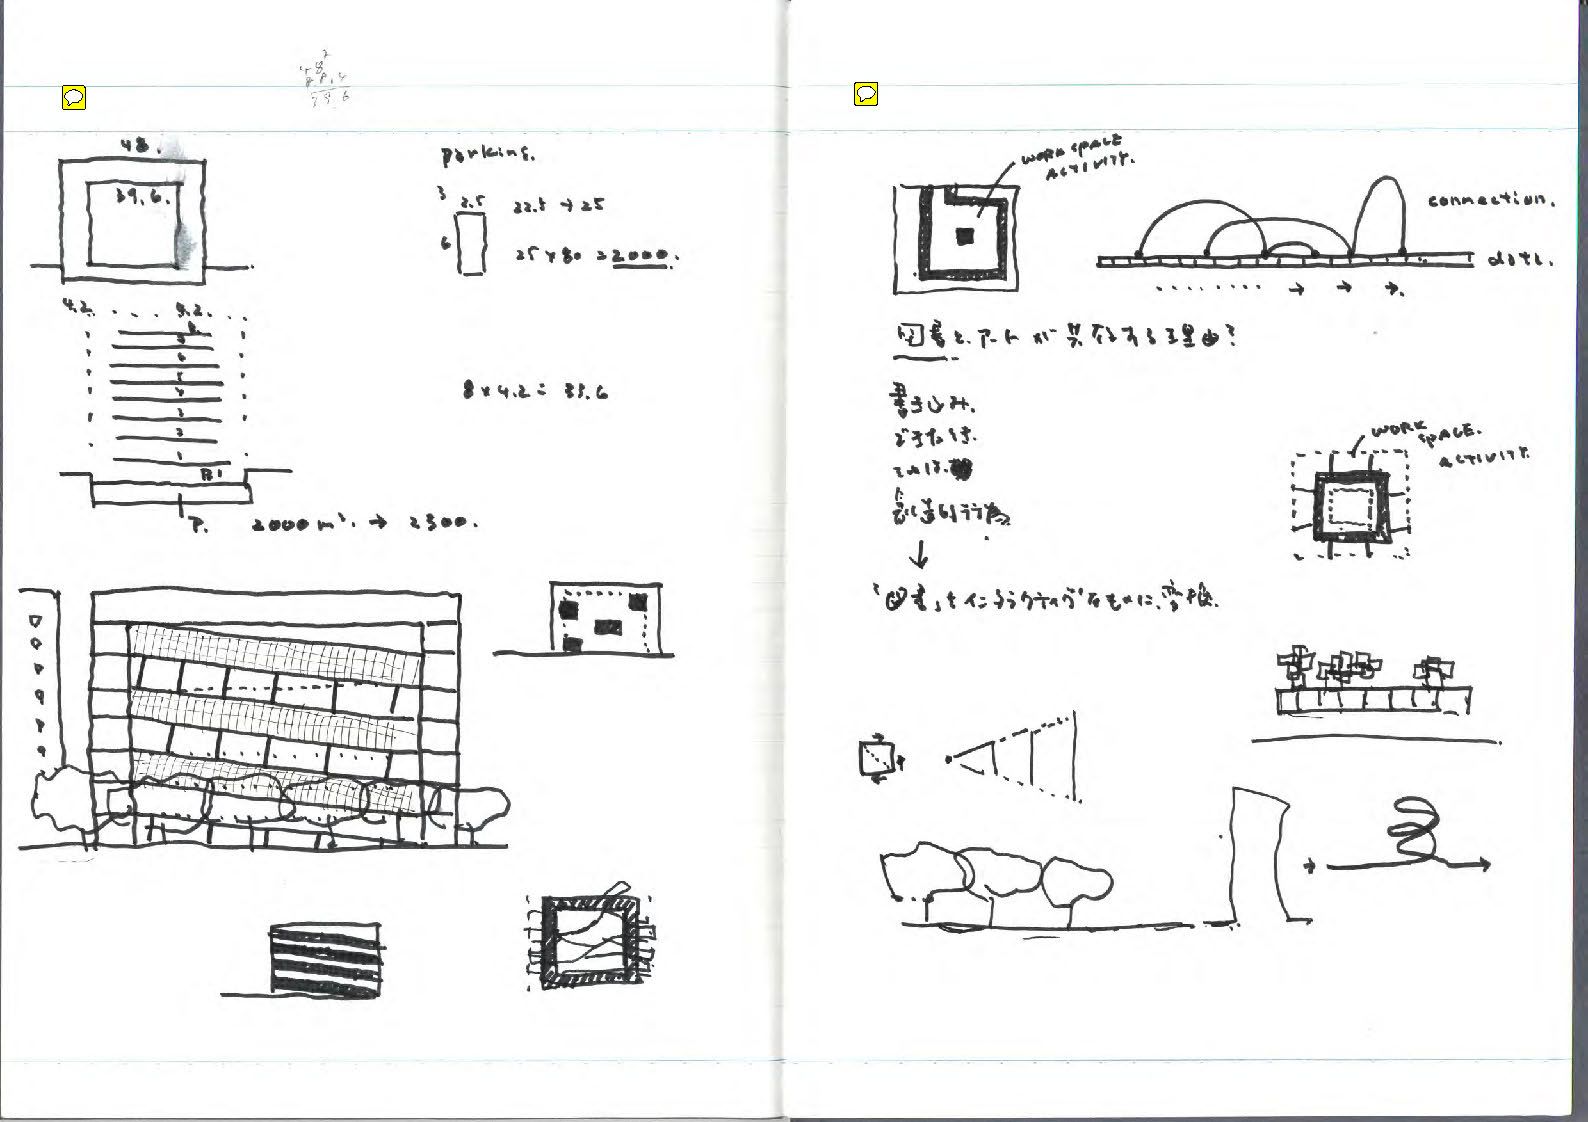 48
8.4
39.6
48.
39.6.
4.2. . . . 4.2. . .
8
7
6
5
4
3
2
1
B1
P. 2000m². → 2500.
parking.
3 2.5 22.5 → 25
6 25 × 80 = 2000.
8 × 4.2 = 33.6
WORK SPACE
ACTIVITY.
connection.
data.
図書と、アートが共存する理由?
書き込み.
できたら.
それは.
創造的行為
↓
「図書」をインタラクティヴなものに、変換.
WORK
SPACE.
ACTIVITY.